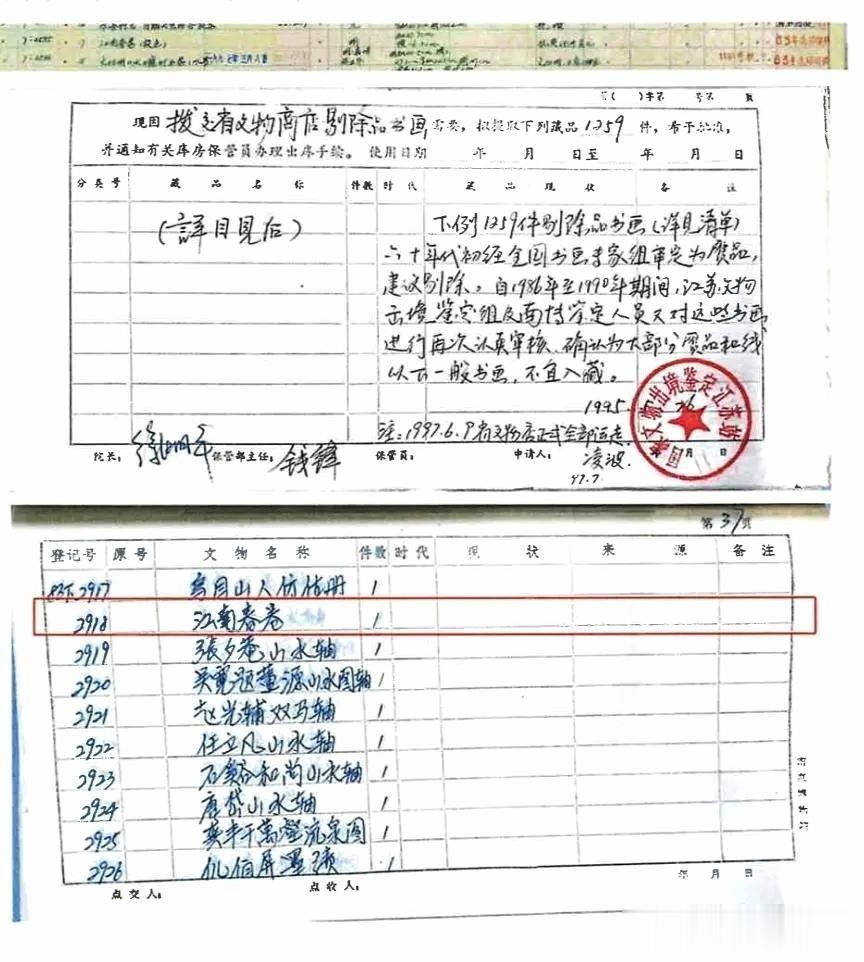 江南春卷
字第 号第 页
现因 拨交省文物商店剔除品书画 需要，拟提取下列藏品 1259 件，希予批准，
并通知有关库房保管员办理出库手续。 使用日期 年 月 日至 年 月 日
分类号 藏品名称 件数 时代 藏品现状 备注
(詳目見后)
下列1259件剔除品书画(详见清单)
六十年代初经全国书画专家组审定为赝品，
建议剔除。自1986年至1990年期间，江苏文物
出境鉴定组及南博鉴定人员又对这些书画
进行再次认真审核，确认为大部分赝品和线
以下一般书画，不宜入藏。
1995
国家文物出境鉴定江苏站
注:1997.6.9 省文物店正式全部运走
院长: 徐湖平 保管部主任: 钱锋 保管员: 申请人: 凌波
97.7.
第 37 页
登记号 原号 文物名称 件数 时代 现状 来源 备注
2917 仿 册 1
2918 江南春卷 1
2919 張夕菴山水轴 1
2920 吴寛题董源山水图轴 1
2921 赵光辅双马轴 1
2922 任立凡山水轴 1
2923 石谿和尚山水轴 1
2924 唐岱山水轴 1
2925 龚半千萬壑流泉图 1
2926 1
年 月 日
点交人: 点收人: